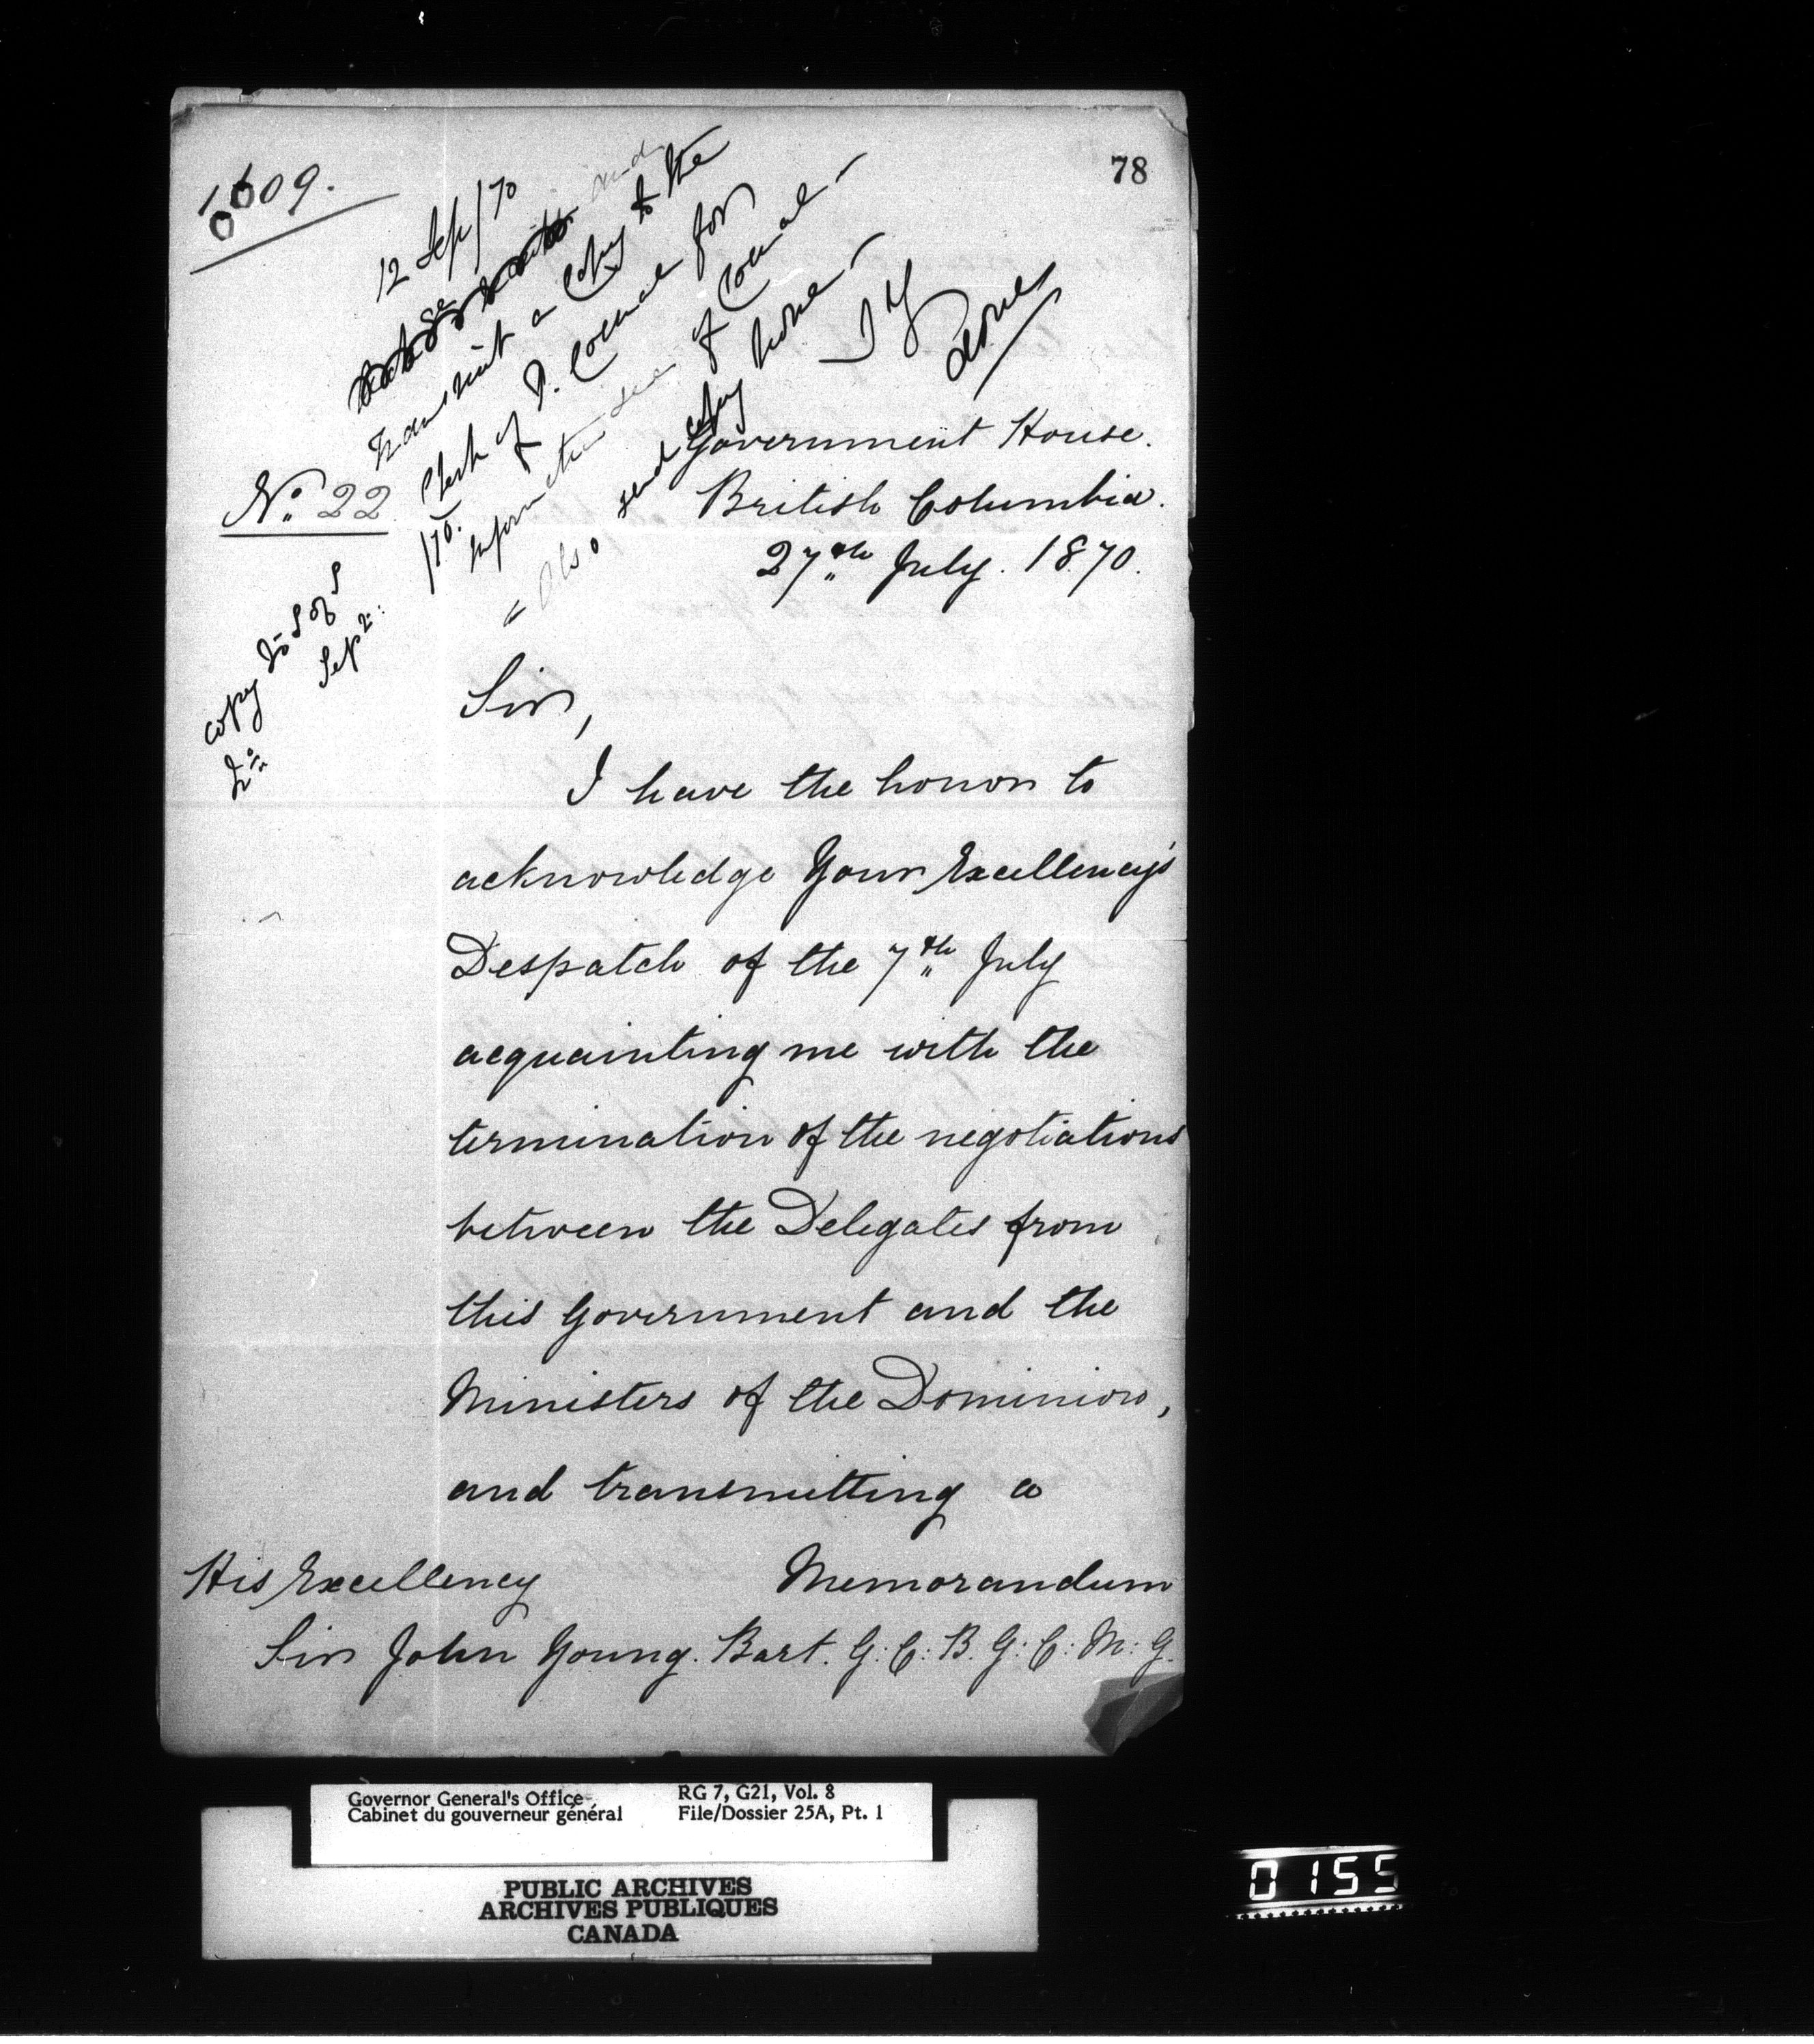 78
12 Sep/70
and
transmit a Copy to the
Clerk of P. Council for
information of Council —
Also send copy home —
J Y
done
No. 22
/70.
copy to S of S
Sep 2:
Government House.
British Columbia.
27th July. 1870.
Sir,
I have the honor to
acknowledge Your Excellency's
Despatch of the 7th July
acquainting me with the
termination of the negotiations
between the Delegates from
this Government and the
Ministers of the Dominion,
and transmitting a
Memorandum
His Excellency
Sir John Young. Bart. G: C: B. G: C: M: G.
Governor General's Office
Cabinet du gouverneur général
RG 7, G21, Vol. 8
File/Dossier 25A, Pt. 1
PUBLIC ARCHIVES
ARCHIVES PUBLIQUES
CANADA
0155